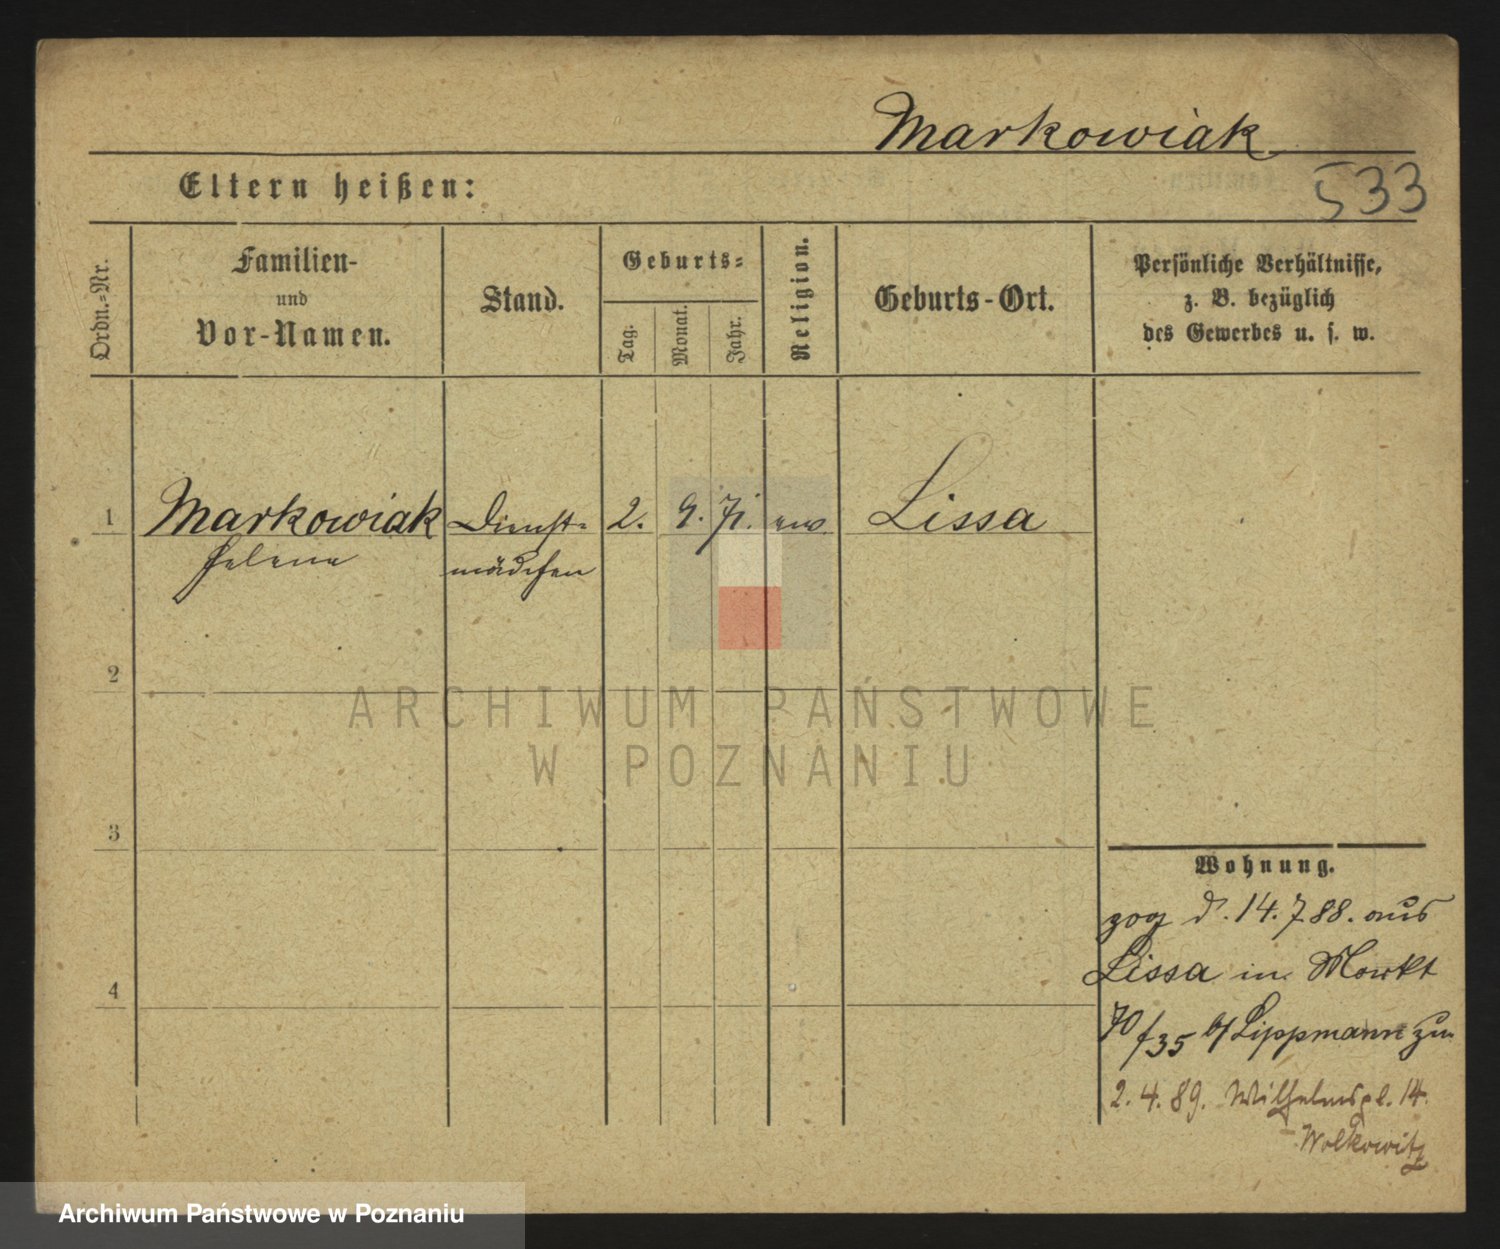 Markowiak
Eltern heißen:
533
Ordn.-Nr.
Familien-
und
Vor-Namen.
Stand.
Geburts-
Tag.
Monat.
Jahr.
Religion.
Geburts-Ort.
Persönliche Verhältnisse,
z. B. bezüglich
des Gewerbes u. s. w.
1 Markowiak Dienst- 2. 9. 71. Lissa
Helene mädchen
2
ARCHIWUM PAŃSTWOWE
W POZNANIU
3
Wohnung.
zog d. 14.7.88. aus
Lissa in Markt
4
70/35 b/ Lippmann zu
2.4.89. Wilhelmspl. 14.
Wolkowitz
Archiwum Państwowe w Poznaniu